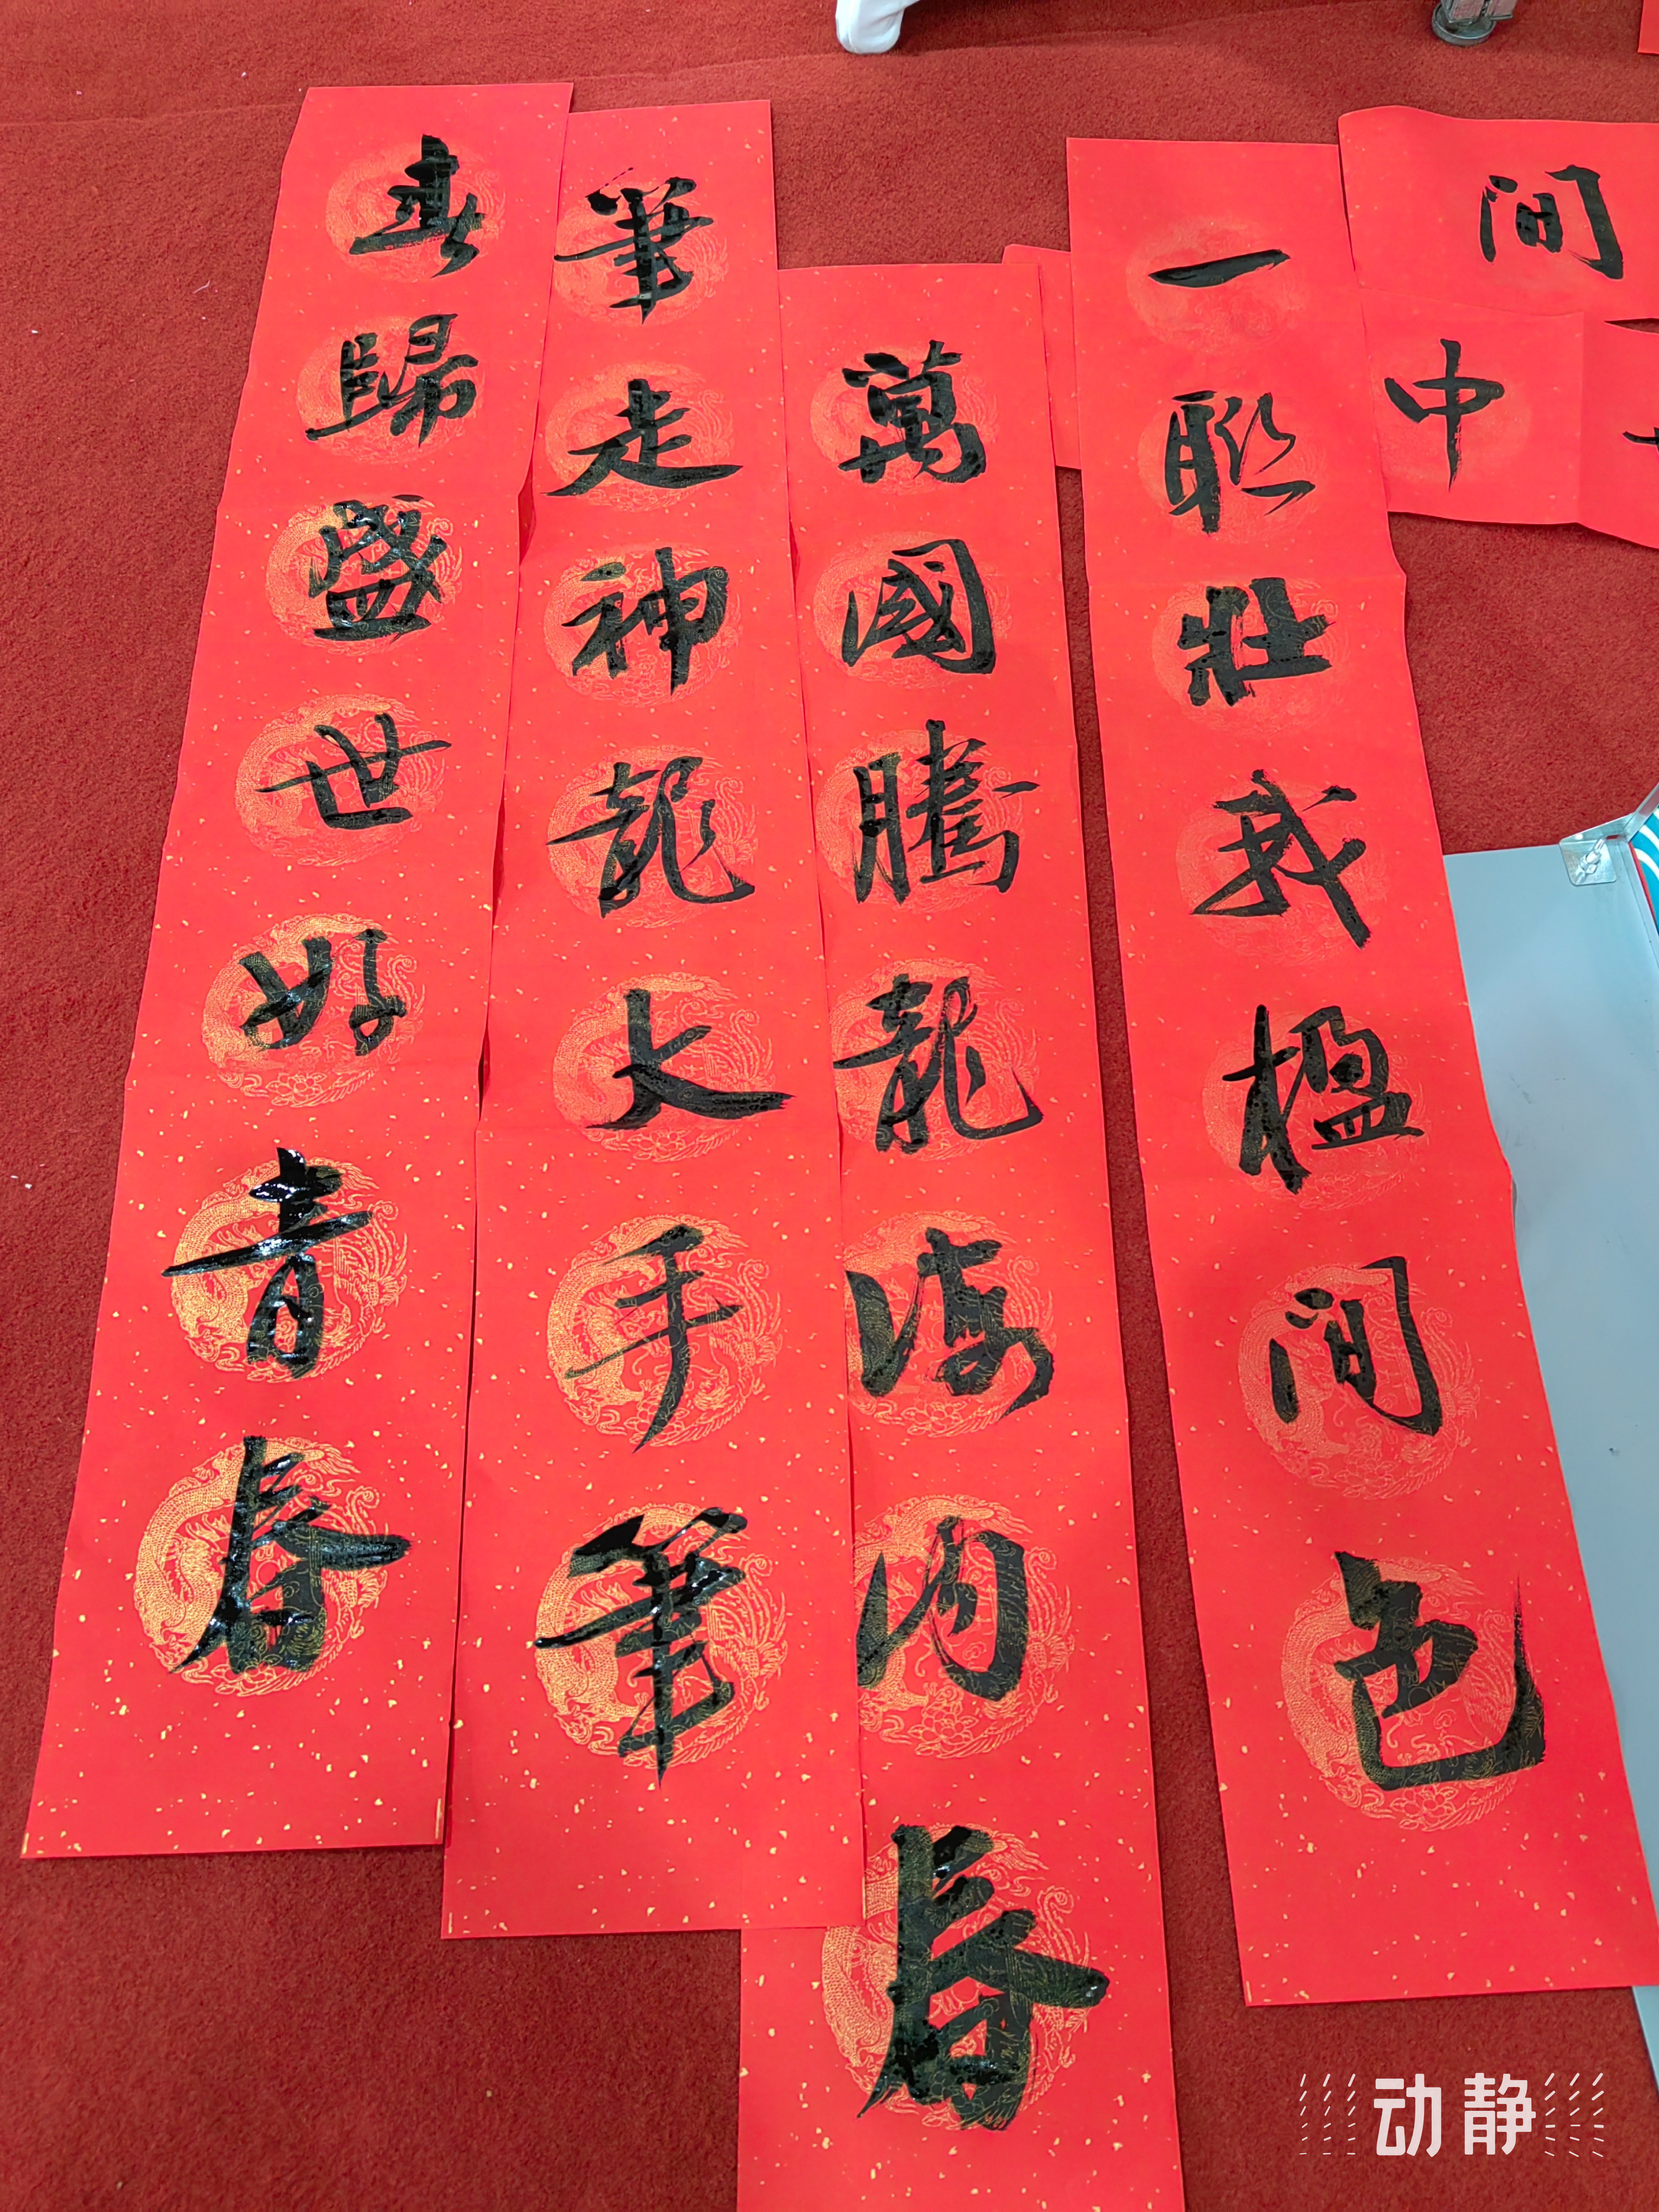 間
中
一聯壯我楹間色
萬國騰龍海内春
筆走神龍大手筆
春歸盛世好青春
动静